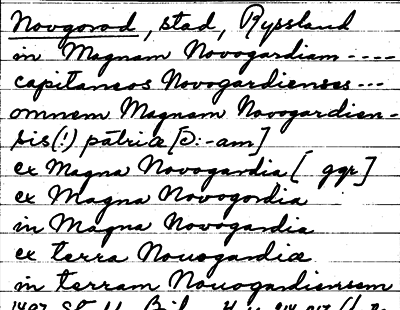 Novgorod, stad, Ryssland
in Magnam Novogardiam ----
capitaneos Novogardienses ---
omnem Magnam Novogardien-
sis(!) patriæ [ɔ:-am]
ex Magna Novogardia [ ggr]
ex Magna Novogordia
in Magna Novogardia
ex terra Nouogardiæ
in terram Nouogardiensem